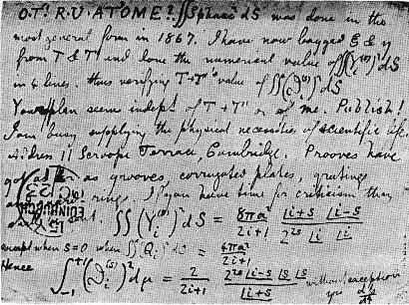 O.T'. R.U. AT'OME? ∬Spharc² dS was done in the
most general form in 1867. I have now bagged ξ & η
from T & T' and done the numerical value of ∬(Y_i^(s))² dS
in 4 lines. thus verifying T+T's value of ∬(ϑ_i^(s))² dS
Your plan seems indept. of T + T' or of me. Publish!
I am busy supplying the physical necessities of scientific life
Address 11 Scroope Terrace, Cambridge. Prooves have
got as far as grooves, corrugated plates, grating
and rings. If you have time for criticism than
∬(Y_i^(s))² dS = 8πa²/(2i+1) |i+s |i-s / 2^2s |i |i
except when s=0 when ∬Q_i² dS = 4πa²/(2i+1)
Hence ∫_{-1}^{+1} (ϑ_i^(s))² dμ = 2/(2i+1) 2^2s |i-s |s |s / |i+s without exception
yrs dp/dt
EDINBURGH